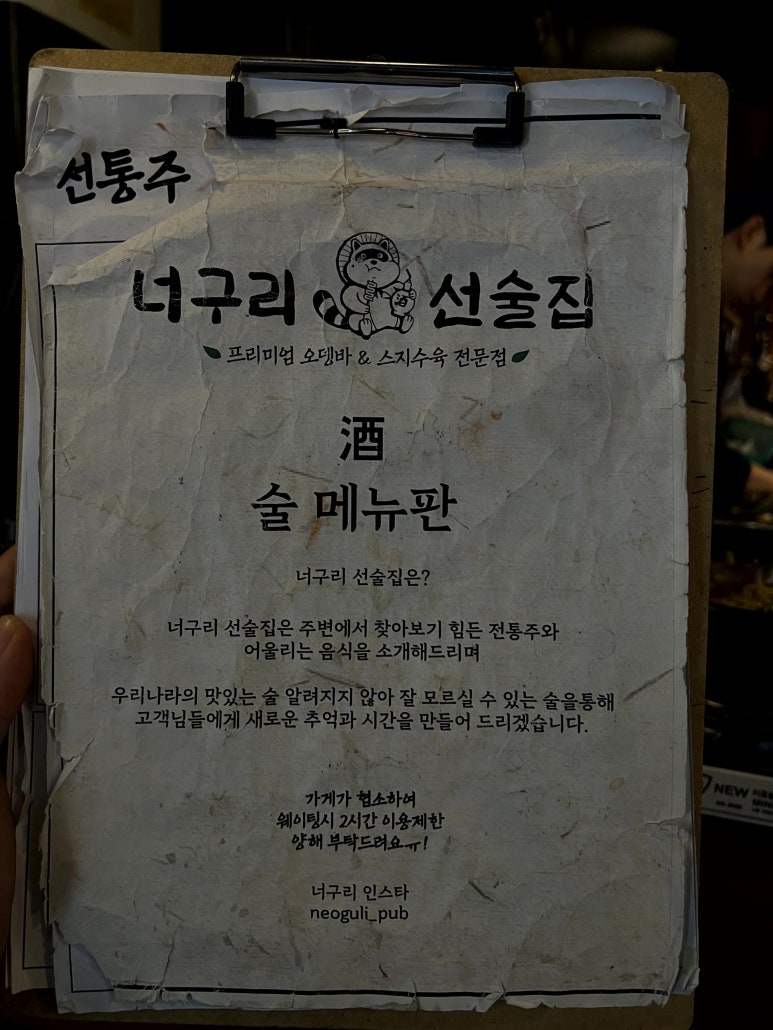 선통주
너구리 선술집
프리미엄 오뎅바 & 스지수육 전문점
酒
술 메뉴판
너구리 선술집은?
너구리 선술집은 주변에서 찾아보기 힘든 전통주와
어울리는 음식을 소개해드리며
우리나라의 맛있는 술 알려지지 않아 잘 모르실 수 있는 술을통해
고객님들에게 새로운 추억과 시간을 만들어 드리겠습니다.
가게가 협소하여
웨이팅시 2시간 이용제한
양해 부탁드려요ㅠ!
너구리 인스타
neoguli_pub
NEW